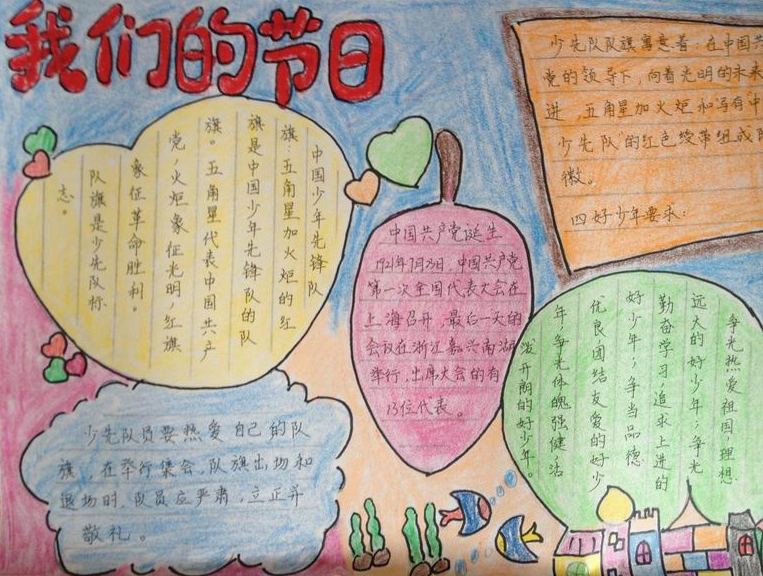 我们的节日
中国少年先锋队
旗：五角星加火炬的红
旗是中国少年先锋队的队
旗。五角星代表中国共产
党，火炬象征光明，红旗
象征革命胜利。
队旗是少先队标
志。
中国共产党诞生
1921年7月23日，中国共产党
第一次全国代表大会在
上海召开，最后一天的
会议在浙江嘉兴南湖
举行，出席大会的有
13位代表。
少先队队旗寓意着：在中国共
党的领导下，向着光明的未来
进，五角星加火炬和写有“中
少先队”的红色绶带组成
徽。
四好少年要求：
争光热爱祖国，理想
远大的好少年；争光
勤奋学习，追求上进的
好少年；争当品德
优良，团结友爱的好少
年；争光体魄强健，活
泼开朗的好少年。
少先队员要热爱自己的队
旗，在举行集会，队旗出场和
退场时，队员应严肃，立正并
敬礼。